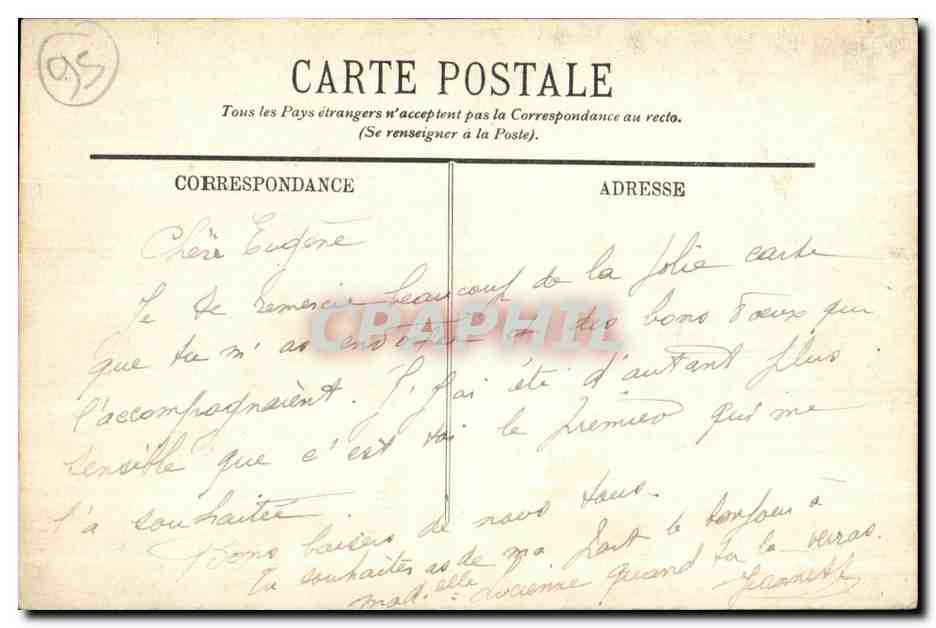 95
CARTE POSTALE
Tous les Pays étrangers n'acceptent pas la Correspondance au recto.
(Se renseigner à la Poste).
CORRESPONDANCE
ADRESSE
Chère Eugène
Je te remercie beaucoup de la jolie carte
que tu m'as envoyée et des bons vœux qui
l'accompagnaient. J'y ai été d'autant plus
sensible que c'est toi le premier qui me
l'a souhaitée.
Bons baisers de nous tous.
Tu souhaiteras de ma part le bonjour à
Mad.elle Lucienne quand tu la verras.
Jeannette
CPAPHIL